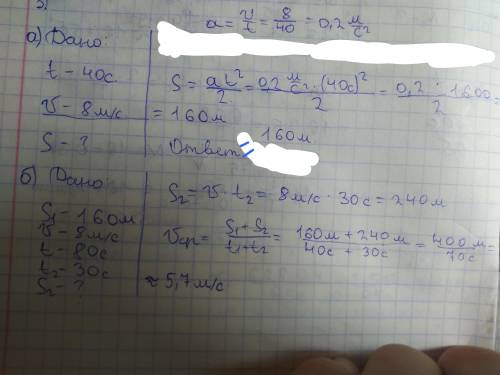 a = v/t = 8/40 = 0,2 м/с²
а) Дано:
t - 40с
v - 8м/с
S - ?
S = at²/2 = 0,2 м/с² · (40с)²/2 = 0,2 · 1600/2 =
= 160м
Ответ: 160м
б) Дано
S₁ - 160м
v - 8м/с
t - 80с
t₂ - 30с
S₂ - ?
S₂ = v · t₂ = 8м/с · 30с = 240м
vср = S₁+S₂/t₁+t₂ = 160м + 240м/40с + 30с = 400м/70с
≈ 5,7м/с